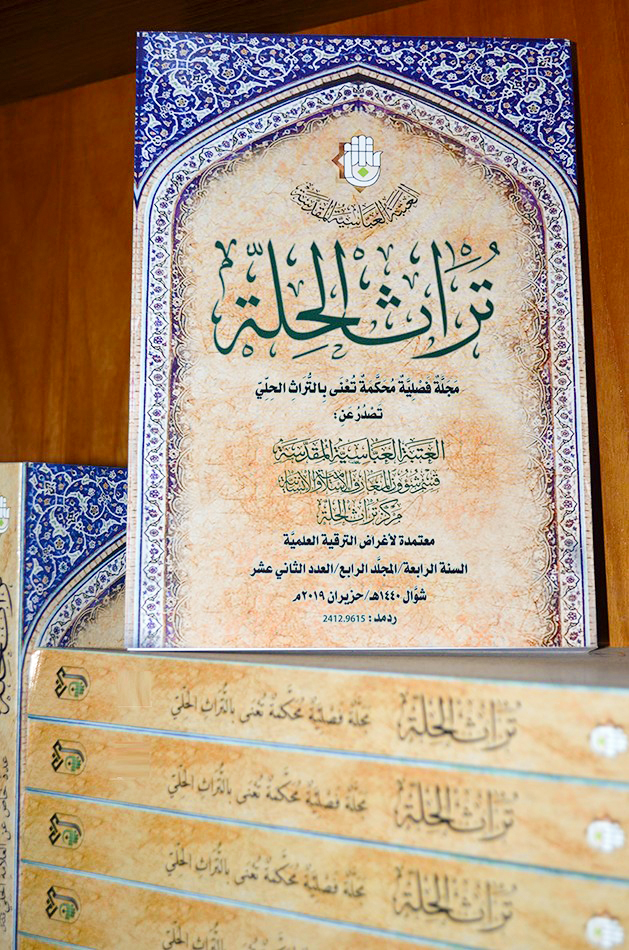 العتبة العباسية المقدسة
تُرَاثُ الحِلَّة
مَجَلَّةٌ فَصْلِيَّةٌ مُحَكَّمَةٌ تُعْنَى بالتُّرَاث الحِلِّيّ
تَصْدُرُ عَن:
العتبة العباسية المقدسة
قسم شؤون المعارف الإسلامية والإنسانية
مركز تراث الحلة
معتمدة لأغراض الترقية العلميَّة
السنة الرابعة/المجلَّد الرابع/العدد الثاني عشر
شوَّال ١٤٤٠هـ/حزيران ٢٠١٩م
ردمد: 2412.9615
تُرَاثُ الحِلَّة مجَلَّةٌ فَصْلِيَّةٌ مُحَكَّمَةٌ تُعْنَى بالتُّرَاث الحِلِّيّ
تُرَاثُ الحِلَّة مجَلَّةٌ فَصْلِيَّةٌ مُحَكَّمَةٌ تُعْنَى بالتُّرَاث الحِلِّيّ
تُرَاثُ الحِلَّة مجَلَّةٌ فَصْلِيَّةٌ مُحَكَّمَةٌ تُعْنَى بالتُّرَاث الحِلِّيّ
تُرَاثُ الحِلَّة مجَلَّةٌ فَصْلِيَّةٌ مُحَكَّمَةٌ تُعْنَى بالتُّرَاث الحِلِّيّ
عدد خاص عن العلامة الحلي